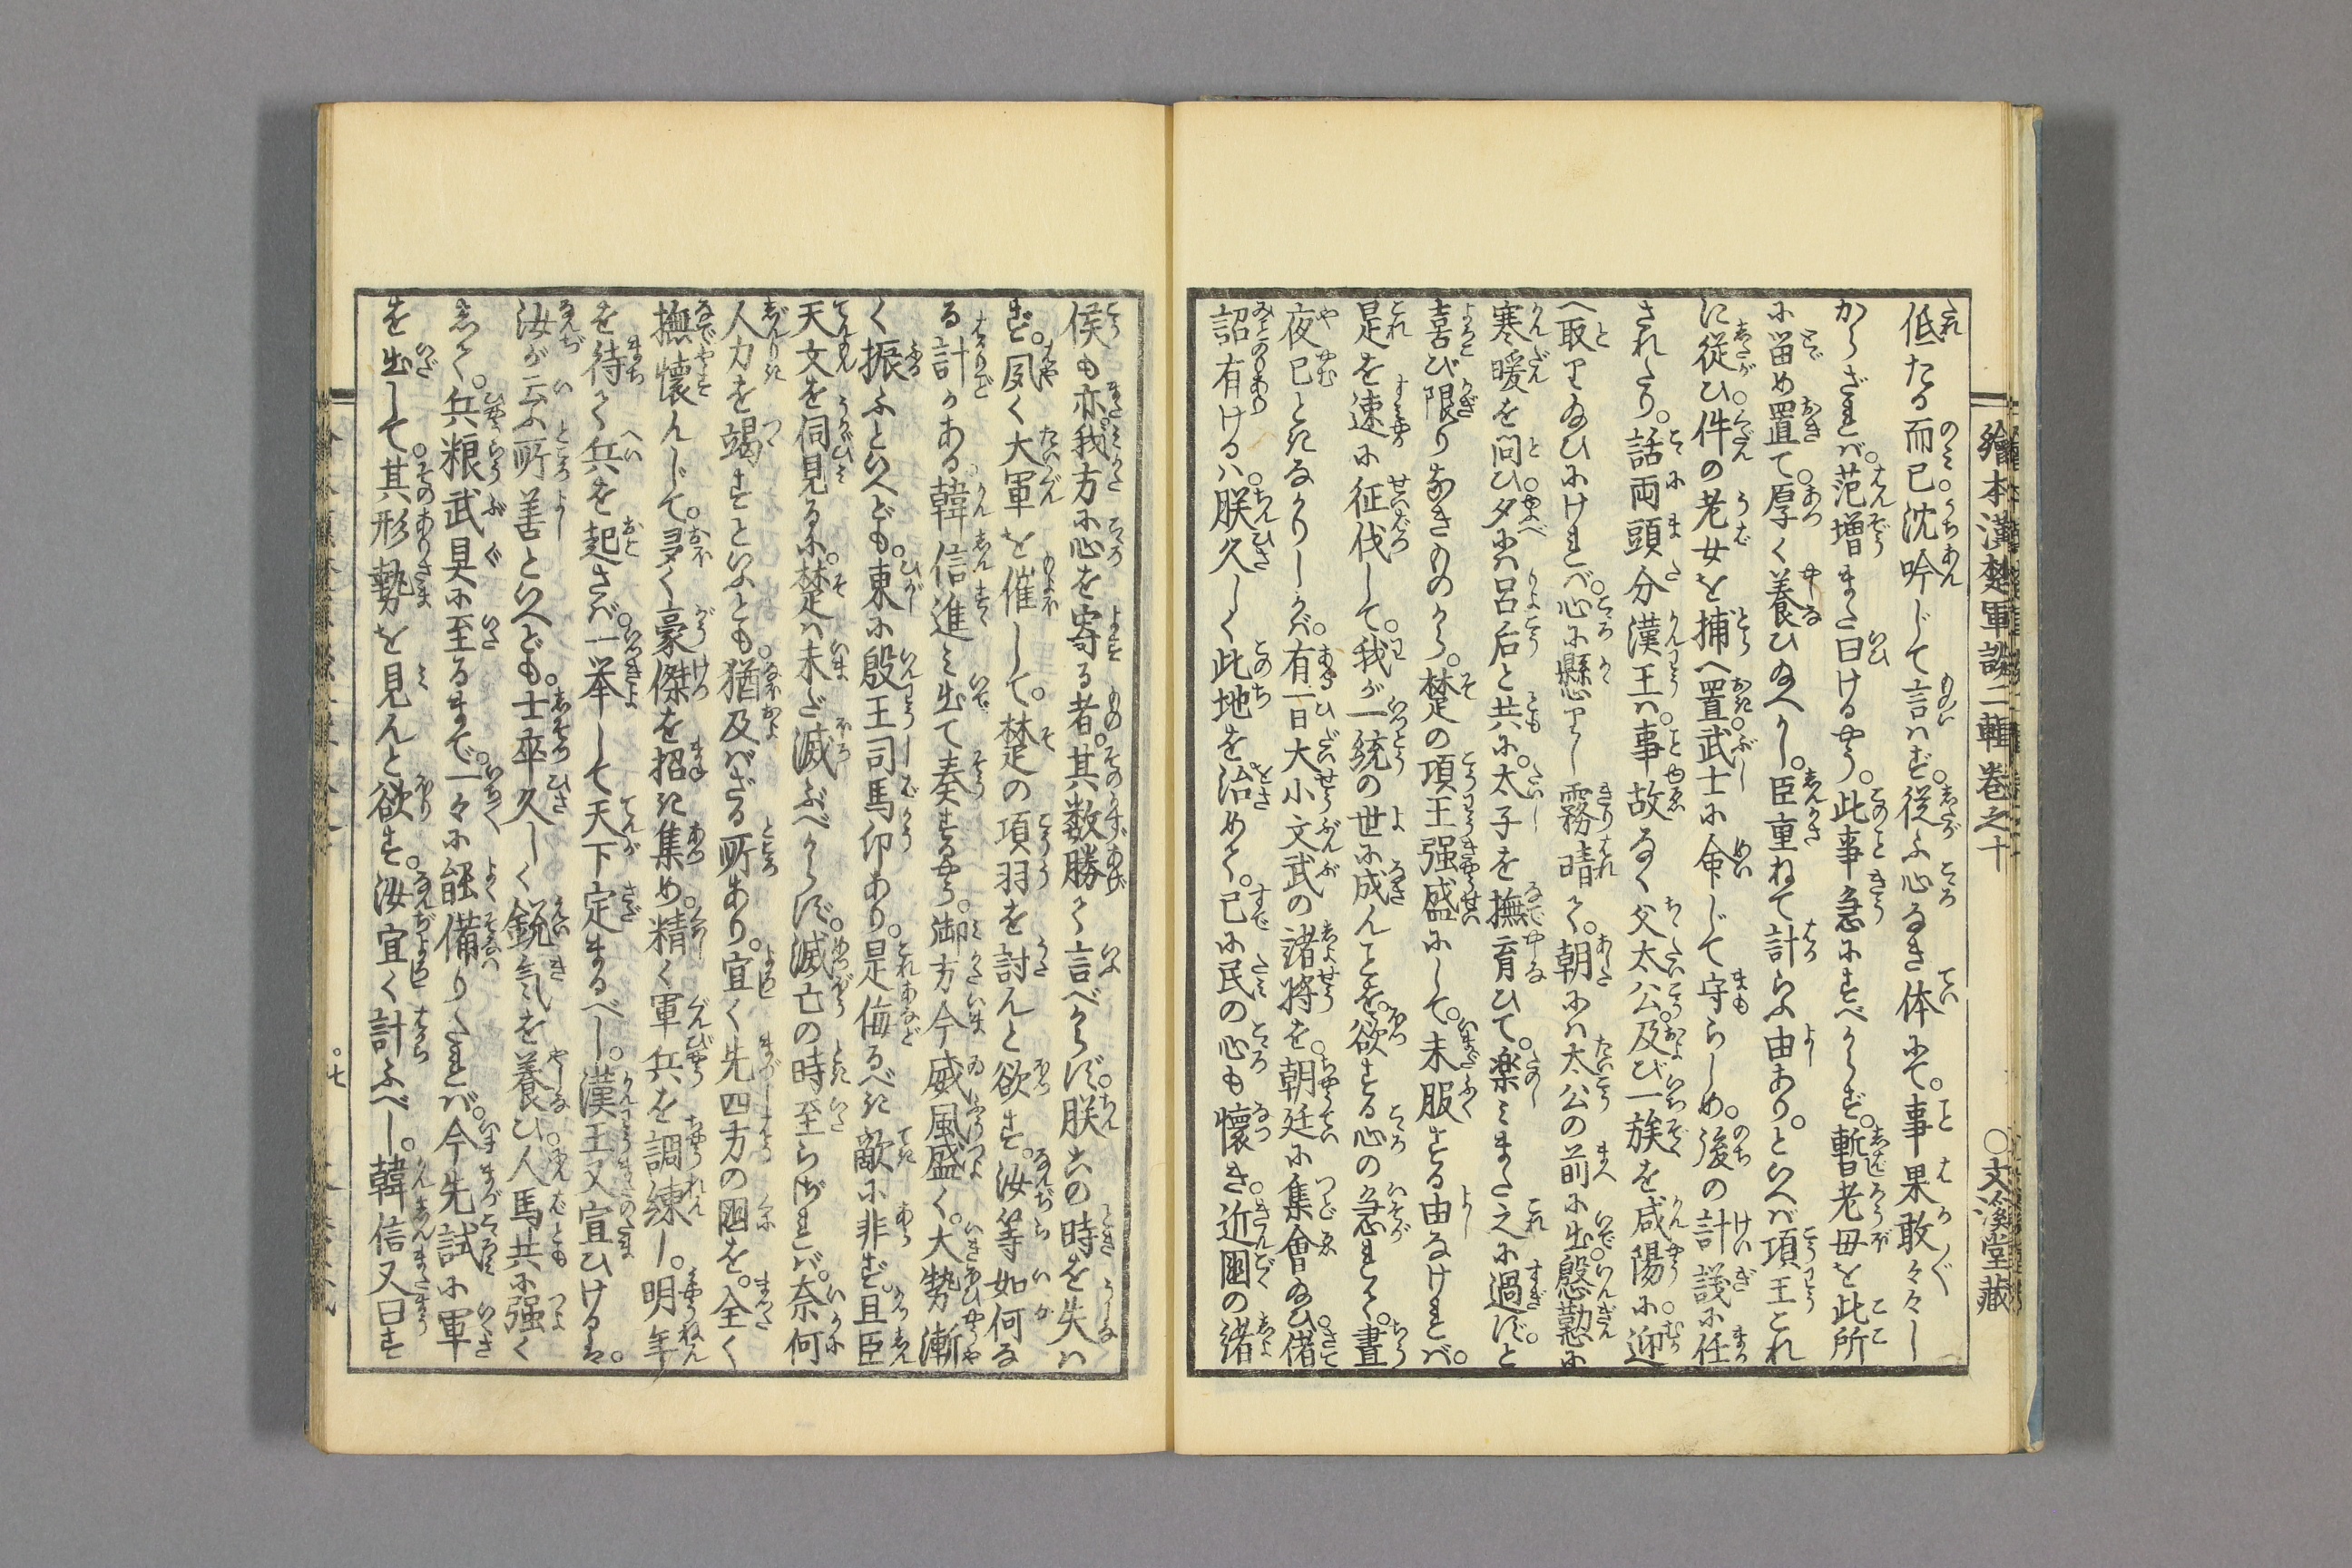 繪本漢楚軍談二輯卷之十　〇文溪堂藏
低たる而已沈吟じて言はず。従ふ心なき体にて。事果敢々々し
からざれば。范増また曰けるやう。此事急にすべからず。暫老母を此所
に留め置て。厚く養ひ給へかし。臣重ねて計らふ由あり。といへば項王これ
に従ひ。件の老女を捕へ置。武士に命じて守らしめ。後の計議に任
されたり。話両頭分漢王は。事故なく父太公。及び一族を咸陽に迎
へ取り給ひにければ。心に懸りし霧晴て。朝には太公の前に出。慇懃に
寒暖を問ひ。夕には呂后と共に。太子を撫育ひて。楽みまた之に過ず。と
喜び限りなきものから。楚の項王强盛にして。未服する由なければ。
是を速に征伐して。我が一統の世に成んことを。欲する心の急れて。晝
夜已ときなかりしかば。有一日大小文武の諸將を。朝廷に集會給ひ。偖
詔有けるは。朕久しく此地を治めて。已に民の心も懷き。近國の諸
侯も亦。我方に心を寄る者。其数勝て言べからず。朕この時を失は
ず。夙く大軍を催して。楚の項羽を討んと欲す。汝等如何な
る計かある。韓信進み出て奏するやう。御方今威風盛く。大勢漸
く振ふといへども。東に殷王司馬卬あり。是侮るべき敵に非ず。且臣
天文を伺見るに。楚は未だ滅ぶべからず。滅亡の時至らざれば。奈何
人力を竭すといふとも。猶及ばざる所あり。宜く先四方の國を。全く
撫懷んじて。多く豪傑を招き集め。精く軍兵を調練し。明年
を待て兵を起さば。一挙して天下定まるべし。漢王又宣ひけるは。
汝が云ふ所善といへども。士卒久しく鋭気を養ひ。人馬共に强く
して。兵粮武具に至るまで。一々に能備りたれば。今先試に軍
を出して。其形勢を見んと欲す。汝宜く計ふべし。韓信又曰す
〇七